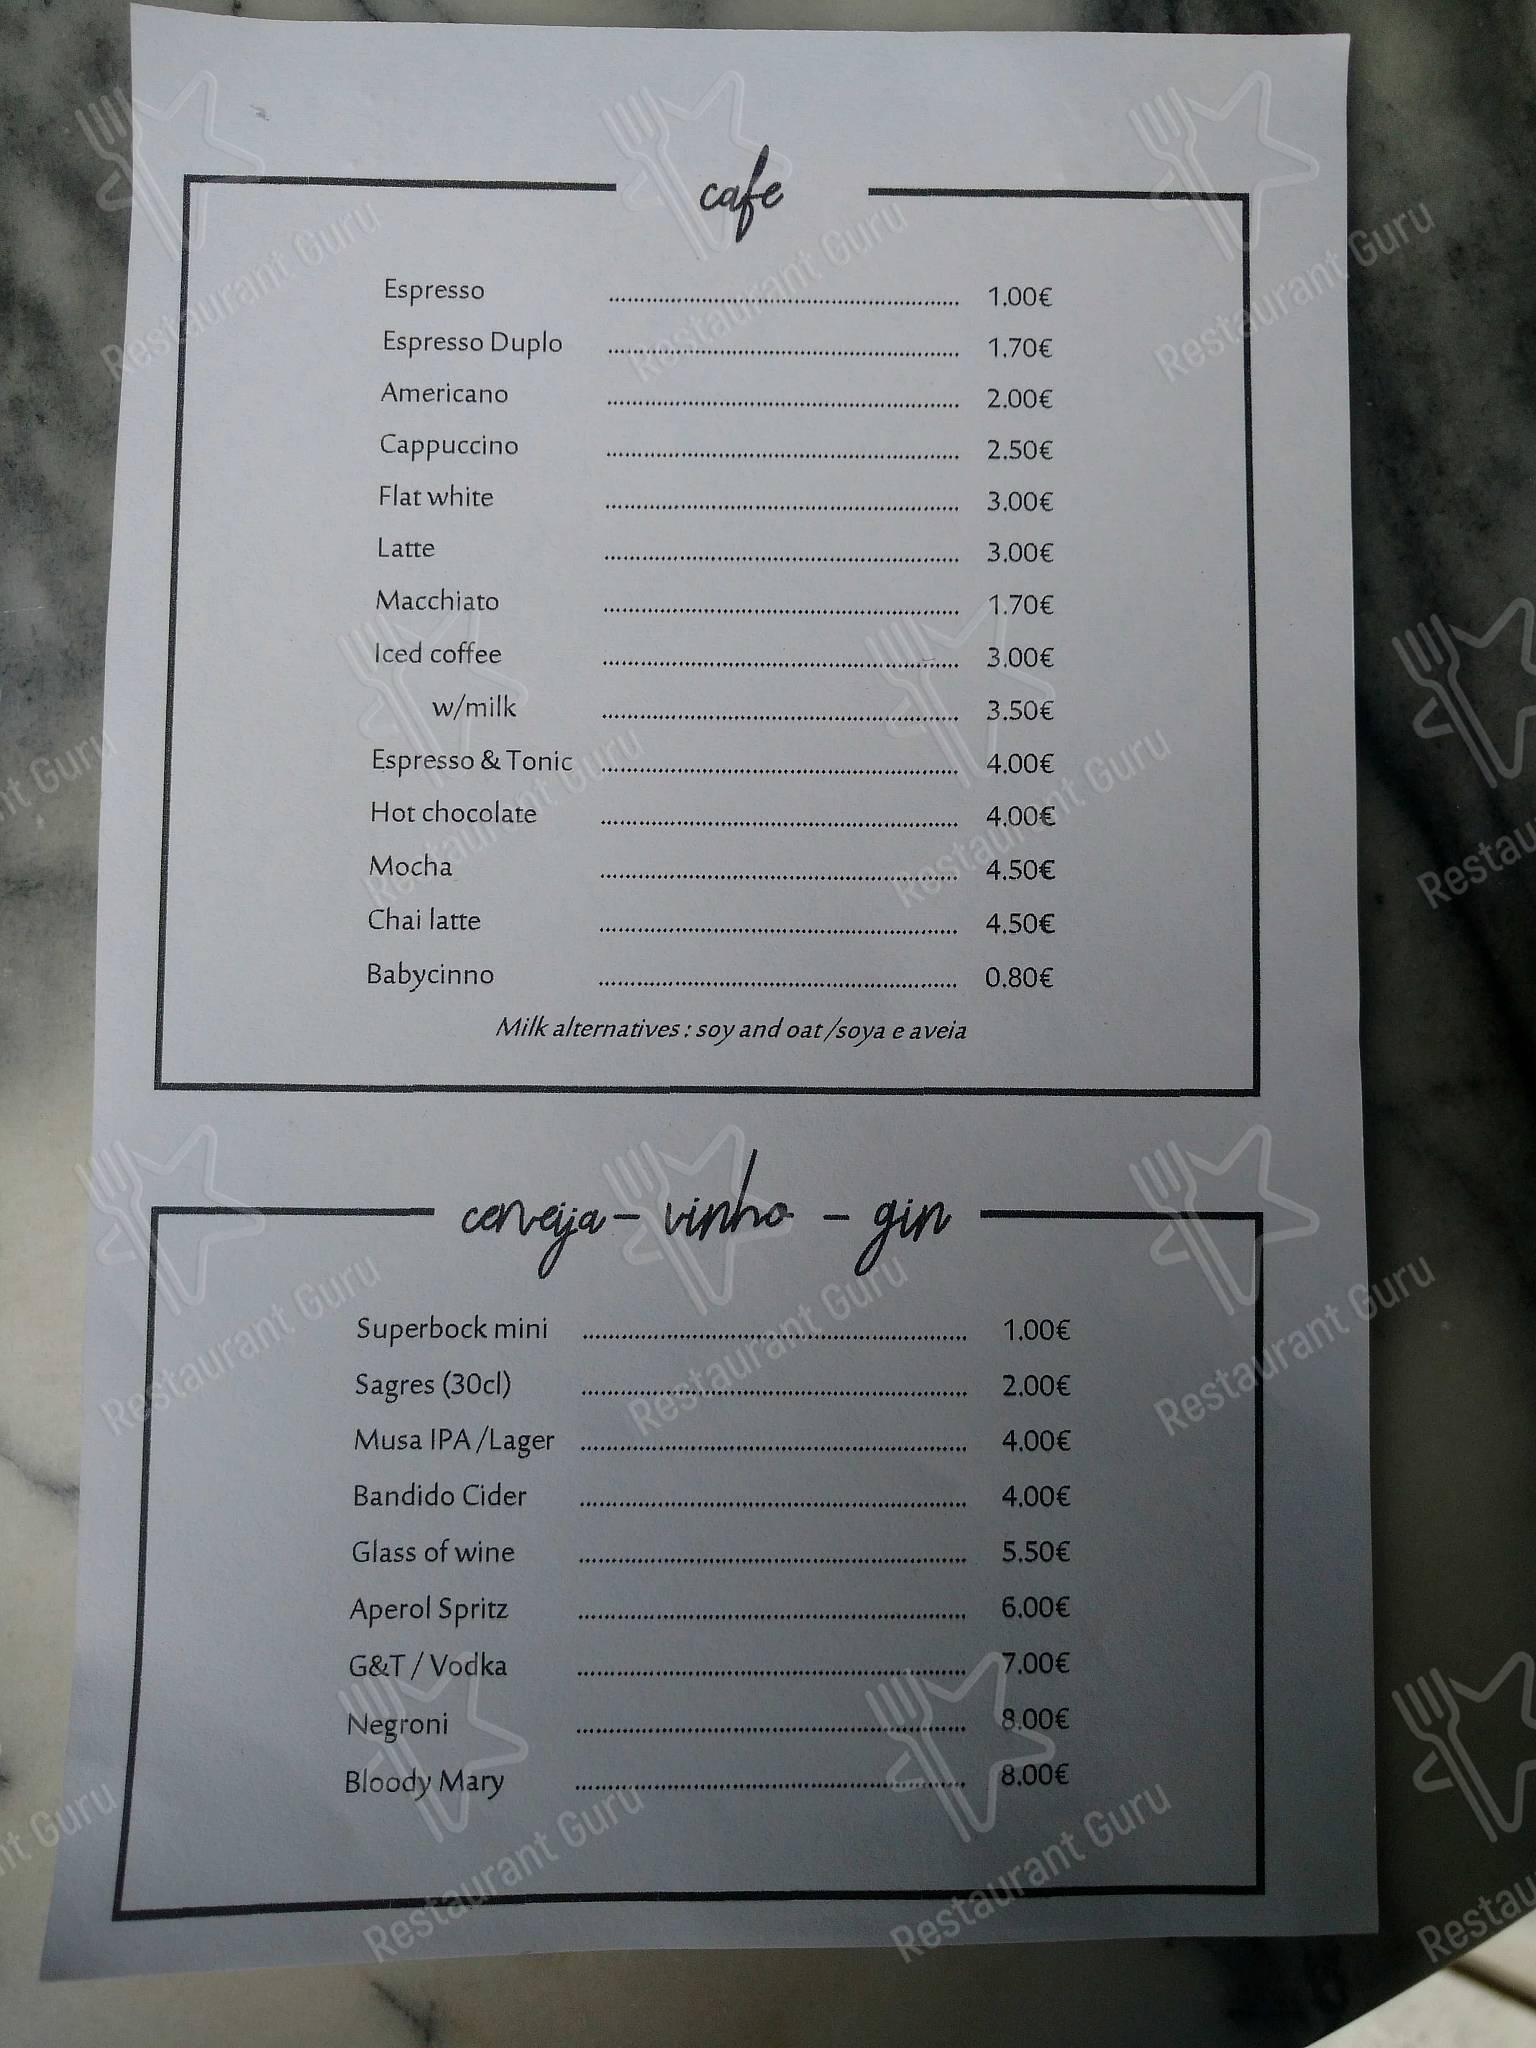 cafe
Espresso ........ 1.00€
Espresso Duplo ........ 1.70€
Americano ........ 2.00€
Cappuccino ........ 2.50€
Flat white ........ 3.00€
Latte ........ 3.00€
Macchiato ........ 1.70€
Iced coffee ........ 3.00€
w/milk ........ 3.50€
Espresso & Tonic ........ 4.00€
Hot chocolate ........ 4.00€
Mocha ........ 4.50€
Chai latte ........ 4.50€
Babycinno ........ 0.80€
Milk alternatives : soy and oat /soya e aveia
cerveija - vinho - gin
Superbock mini ........ 1.00€
Sagres (30cl) ........ 2.00€
Musa IPA /Lager ........ 4.00€
Bandido Cider ........ 4.00€
Glass of wine ........ 5.50€
Aperol Spritz ........ 6.00€
G&T / Vodka ........ 7.00€
Negroni ........ 8.00€
Bloody Mary ........ 8.00€
Restaurant Guru